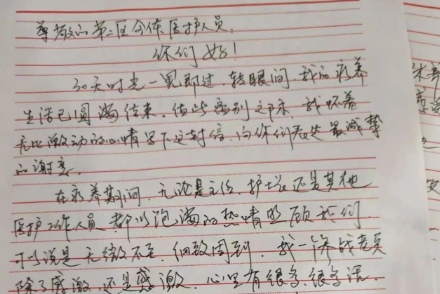 尊敬的第二区全体医护人员,
你们好!
30天时光一晃即过,转眼间,我的疗养
生活已圆满结束,值此离别之际,我怀着
无比激动的心情写下这封信,向你们表达最诚挚
的谢意。
在疗养期间,无论是主任,护士长还是其他
医护工作人员,都以饱满的热情照顾我们,
可以说是无微不至,细致周到,我一
除了感谢,还是感激,心里有很多很多话,